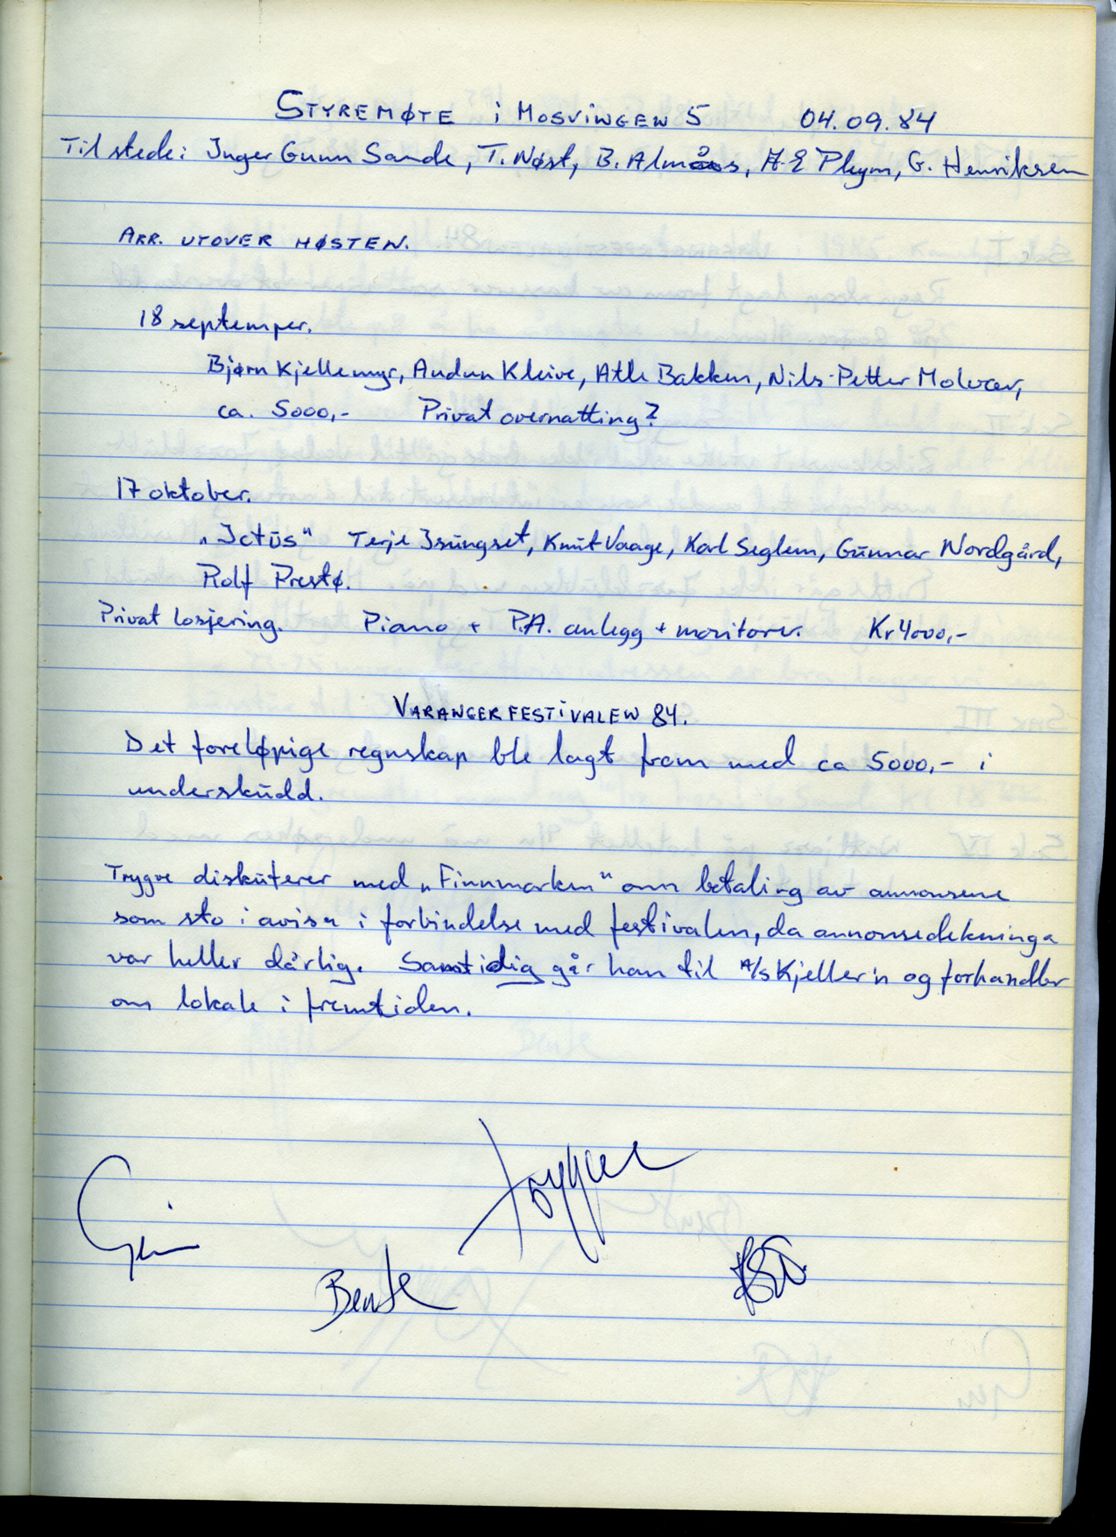 STYREMØTE i MOSVINGEN 5 04.09.84
Tilstede: Inger Gunn Sande, T. Nøst, B. Almås, A-E Pleym, G. Henriksen
ARR. UTOVER HØSTEN.
18 septemper.
Bjørn Kjellemyr, Audun Kleive, Atle Bakken, Nils-Petter Molvær,
ca. 5000,- Privat overnatting?
17 oktober.
„Ictus" Terje Isungset, Knut Vaage, Karl Seglem, Gunnar Nordgård,
Rolf Prestø.
Privat losjering. Piano + P.A. anlegg + monitorer. Kr 4000,-
VARANGERFESTIVALEN 84.
Det foreløpige regnskap ble lagt fram med ca 5000,- i
underskudd.
Trygve diskuterer med „Finnmarken" om betaling av annonsene
som sto i avisa i forbindelse med festivalen, da annonsedekninga
var heller dårlig. Samtidig går han til A/S Kjeller'n og forhandler
om lokale i fremtiden.
Trygve
Geir
Bente